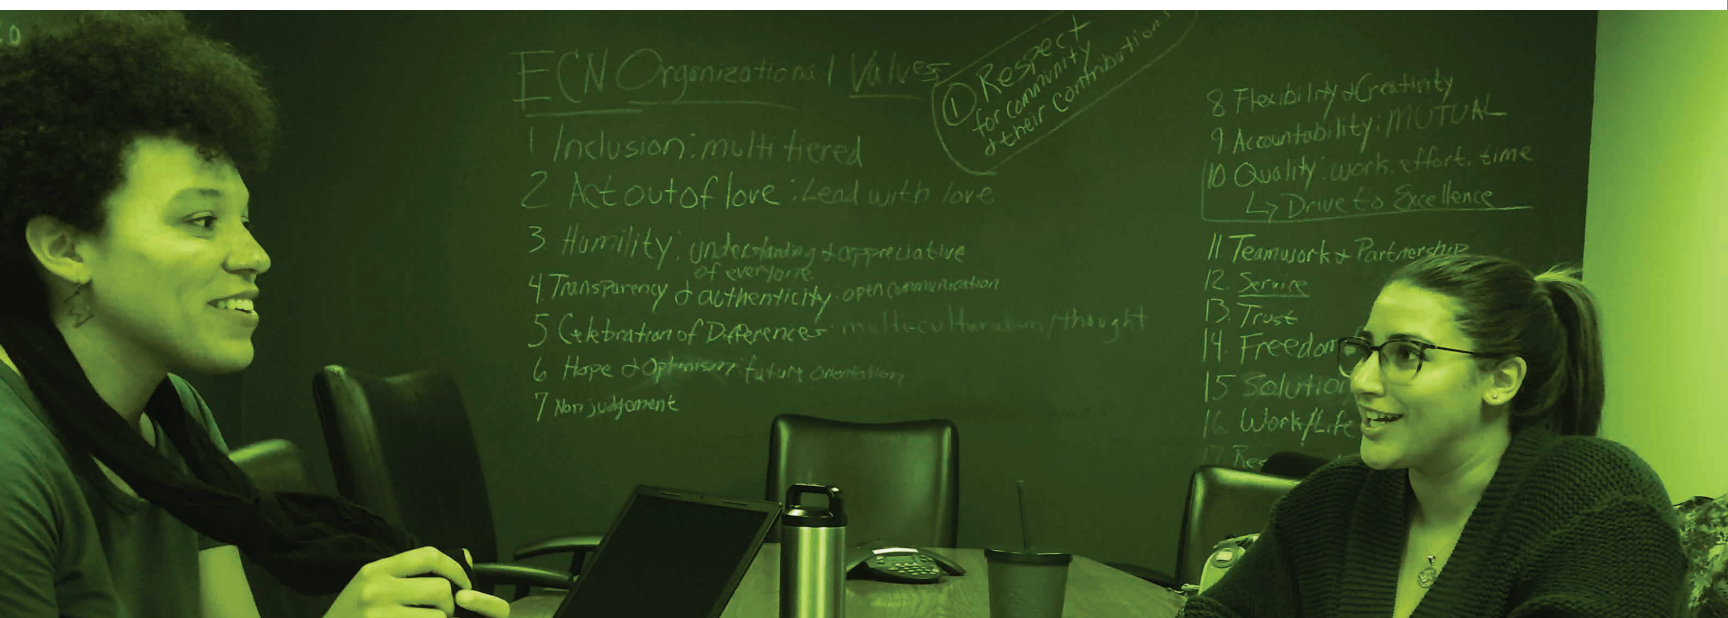 ECN Organizational Values
① Respect
for community
& their contributions
1 Inclusion: multi tiered
2 Act out of love: Lead with love
3 Humility: understanding & appreciative
of everyone
4. Transparency & authenticity. open communication
5 Celebration of Differences: multi-culturalism/thought
6 Hope & Optimism: future orientation
7 Non judgement
8 Flexibility & Creativity
9 Accountability: MUTUAL
10 Quality: work, effort, time
↳ Drive to Excellence
11. Teamwork & Partnership
12. Service
13. Trust
14. Freedom
15 Solution
16. Work/Life
17 Res